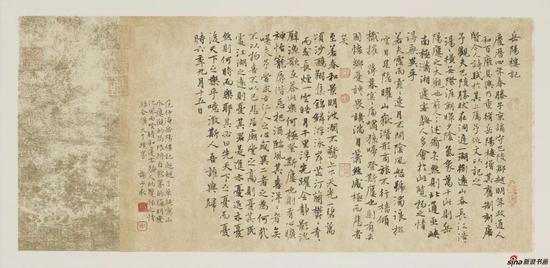 岳陽樓記
慶曆四年春滕子京謫守巴陵郡越明年政通人
和百廢具興乃重修岳陽樓增其舊制刻唐
賢今人詩賦於其上屬予作文以記之
予觀夫巴陵勝狀在洞庭一湖銜遠山吞長江浩浩
湯湯橫無際涯朝暉夕陰氣象萬千此則岳
陽樓之大觀也前人之述備矣然則北通巫峽
南極瀟湘遷客騷人多會於此覽物之情
得無異乎
若夫霪雨霏霏連月不開陰風怒號濁浪排
空日星隱曜山岳潛形商旅不行檣傾
楫摧薄暮冥冥虎嘯猿啼登斯樓也則有去
國懷鄉憂讒畏譏滿目蕭然感極而悲者
矣
至若春和景明波瀾不驚上下天光一碧萬
頃沙鷗翔集錦鱗游泳岸芷汀蘭鬱鬱青
青而或長煙一空皓月千里浮光耀金靜影沉
璧漁歌互答此樂何極登斯樓也則有心曠
神怡寵辱皆忘把酒臨風其喜洋洋者矣
嗟夫予嘗求古仁人之心或異二者之為何哉
不以物喜不以己悲居廟堂之高則憂其民
處江湖之遠則憂其君是進亦憂退亦憂
然則何時而樂耶其必曰先天下之憂而憂
後天下之樂而樂歟噫微斯人吾誰與歸
時六年九月十五日
sina新浪书画